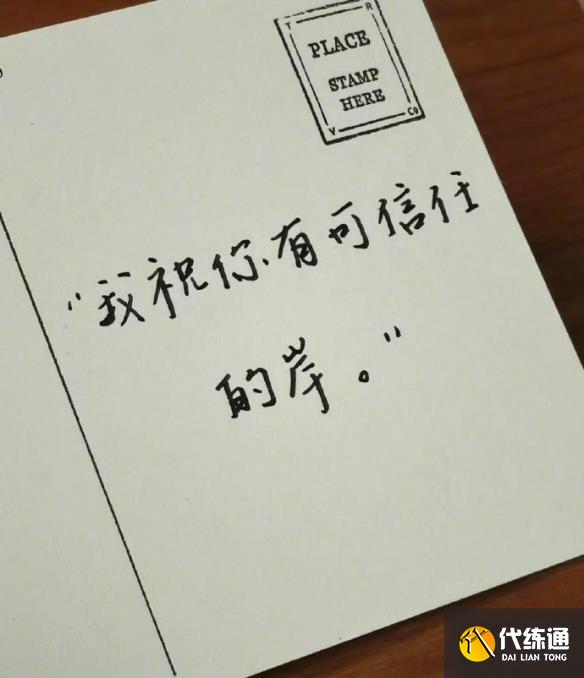 PLACE
STAMP
HERE
T
R
V
Co
“我祝你有可信任
的岸。”
代练通
DAI LIAN TONG